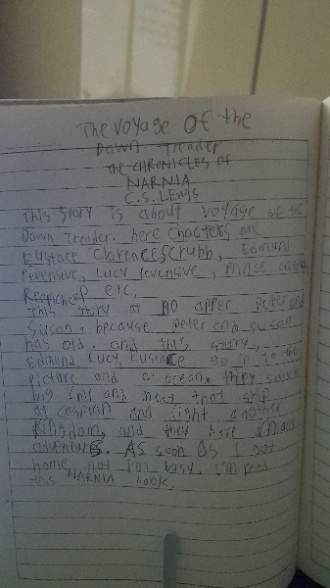 The voyage of the
Dawn Treader
THE CHRONICLES OF
NARNIA
C.S. LEWIS
This story is about voyage of the
Dawn Treader. here chacters are
Eustace Clarence scrubb, Edmund
Pevensive, Lucy Pevensive, Prince
Reepicheep etc,
This story at no apper Peter and
Susan, because Peter and Susan
has old. and this story,
Edmund Lucy Eustace go in to the
picture and a ocean. they
big and meet that ship
of caspian and fight another
kingdom, and they have
adventures. As soon as I got
home not I'm busy, I'm read
this NARNIA book.